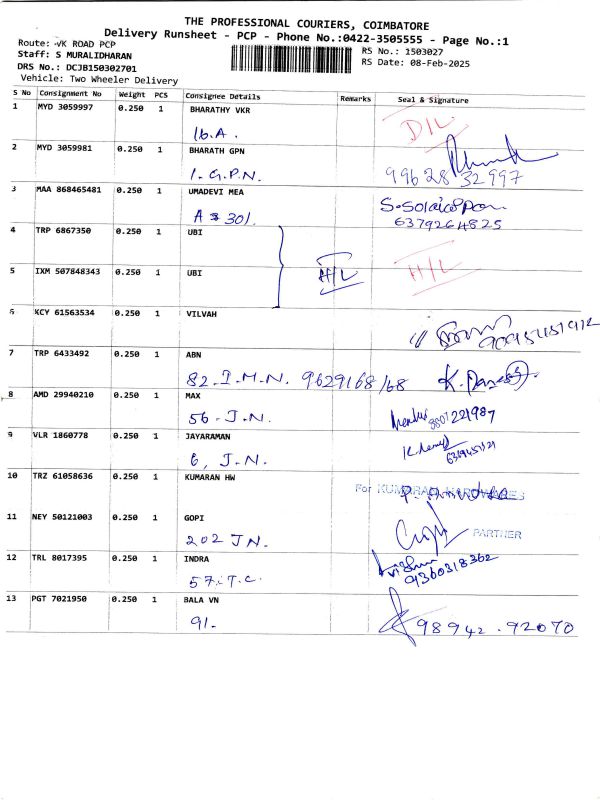 THE PROFESSIONAL COURIERS, COIMBATORE
Delivery Runsheet - PCP - Phone No.:0422-3505555 - Page No.:1
Route: VK ROAD PCP
Staff: S MURALIDHARAN
DRS No.: DCJB150302701
Vehicle: Two Wheeler Delivery
RS No.: 1503027
RS Date: 08-Feb-2025
S No Consignment No Weight PCS Consignee Details Remarks Seal & Signature
1 MYD 3059997 0.250 1 BHARATHY VKR
16.A. D/L
2 MYD 3059981 0.250 1 BHARATH GPN
1. G.P.N. 99628 32997
3 MAA 868465481 0.250 1 UMADEVI MEA
A 301. 6379264825
4 TRP 6867350 0.250 1 UBI
H/L H/L
5 IXM 507848343 0.250 1 UBI
6 KCY 61563534 0.250 1 VILVAH
7 TRP 6433492 0.250 1 ABN
82. I.M.N. 9629168168
8 AMD 29940210 0.250 1 MAX
56. J.N. 9807221987
9 VLR 1860778 0.250 1 JAYARAMAN
6, J.N.
10 TRZ 61058636 0.250 1 KUMARAN HW
For KUMARAN HARDWARES
11 NEY 50121003 0.250 1 GOPI
202 J.N. PARTNER
12 TRL 8017395 0.250 1 INDRA
57. T.C. 9360318362
13 PGT 7021950 0.250 1 BALA VN
91. 98942.92070